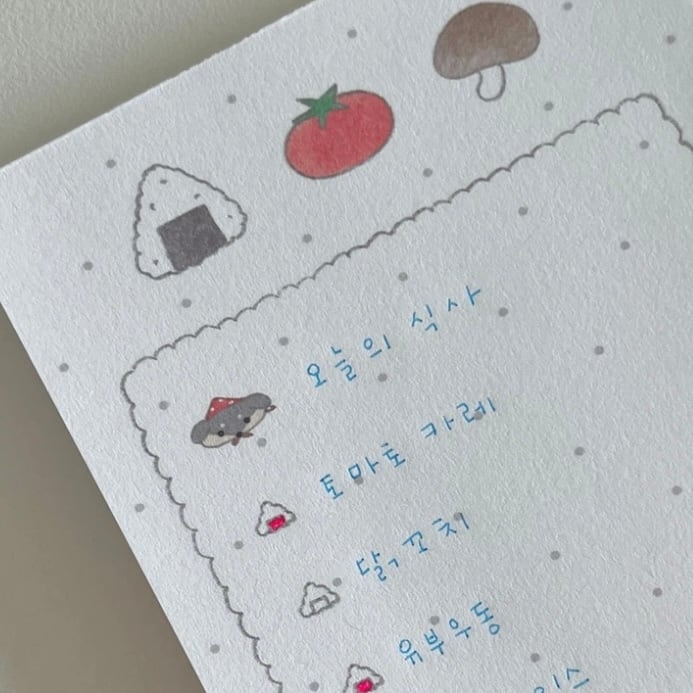 오늘의 식사
토마토 카레
닭꼬치
유부우동